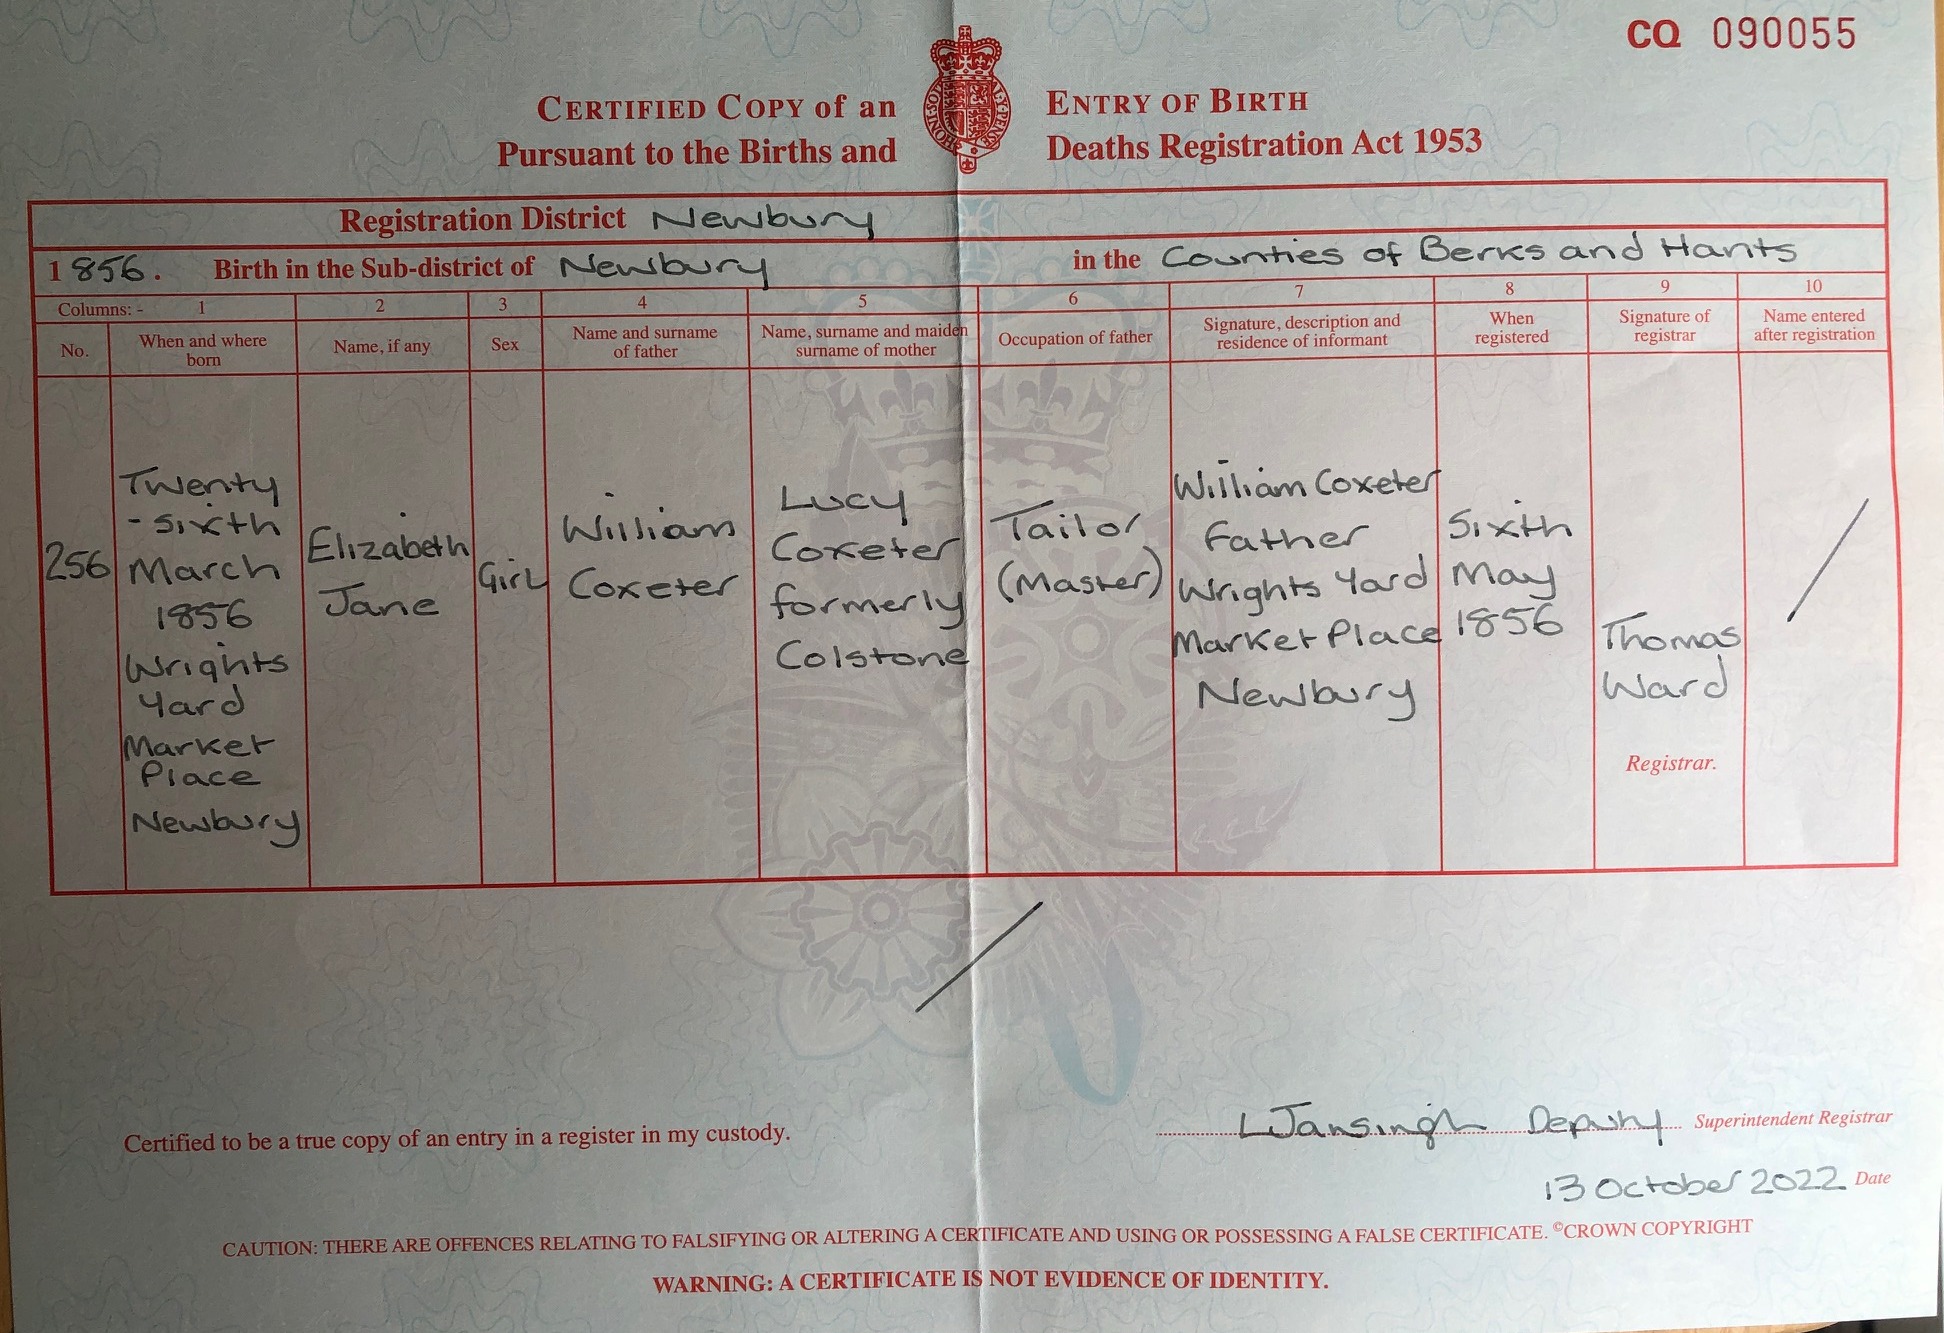 CQ 090055
CERTIFIED COPY of an ENTRY OF BIRTH
Pursuant to the Births and Deaths Registration Act 1953
Registration District Newbury
1856. Birth in the Sub-district of Newbury in the Counties of Berks and Hants
Columns: - 1 2 3 4 5 6 7 8 9 10
No.
When and where
born
Name, if any
Sex
Name and surname
of father
Name, surname and maiden
surname of mother
Occupation of father
Signature, description and
residence of informant
When
registered
Signature of
registrar
Name entered
after registration
256
Twenty
-sixth
March
1856
Wrights
Yard
Market
Place
Newbury
Elizabeth
Jane
Girl
William
Coxeter
Lucy
Coxeter
formerly
Colstone
Tailor
(Master)
William Coxeter
Father
Wrights Yard
Market Place
Newbury
Sixth
May
1856
Thomas
Ward
Registrar.
/
/
Certified to be a true copy of an entry in a register in my custody.
Deputy Superintendent Registrar
13 October 2022 Date
CAUTION: THERE ARE OFFENCES RELATING TO FALSIFYING OR ALTERING A CERTIFICATE AND USING OR POSSESSING A FALSE CERTIFICATE. ©CROWN COPYRIGHT
WARNING: A CERTIFICATE IS NOT EVIDENCE OF IDENTITY.